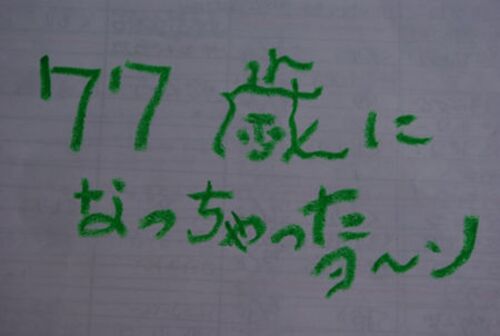 77歳に
なっちゃった
ヨ〜ン